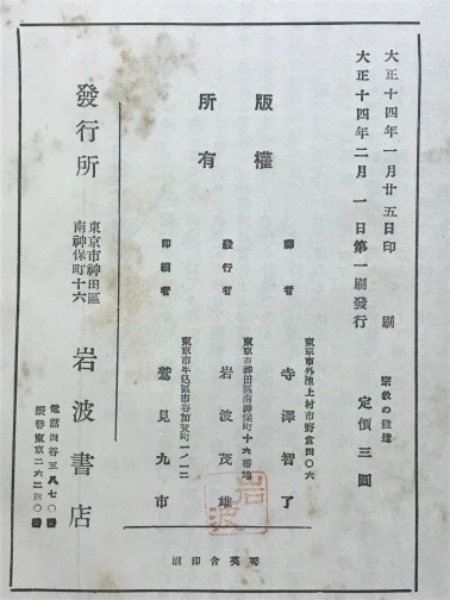 大正十四年一月廿五日印刷
大正十四年二月一日第一刷發行
宗教の發達
定價三圓
版權
所有
譯者
東京市外池上村市野倉四〇六
寺澤智了
發行者
東京市神田區南神保町十六番地
岩波茂雄
岩波
印刷者
東京市牛込區市谷加賀町一ノ一二
鷲見九市
發行所
東京市神田區
南神保町十六
岩波書店
電話四谷五八七〇番
振替東京二六二四〇番
英舍印刷